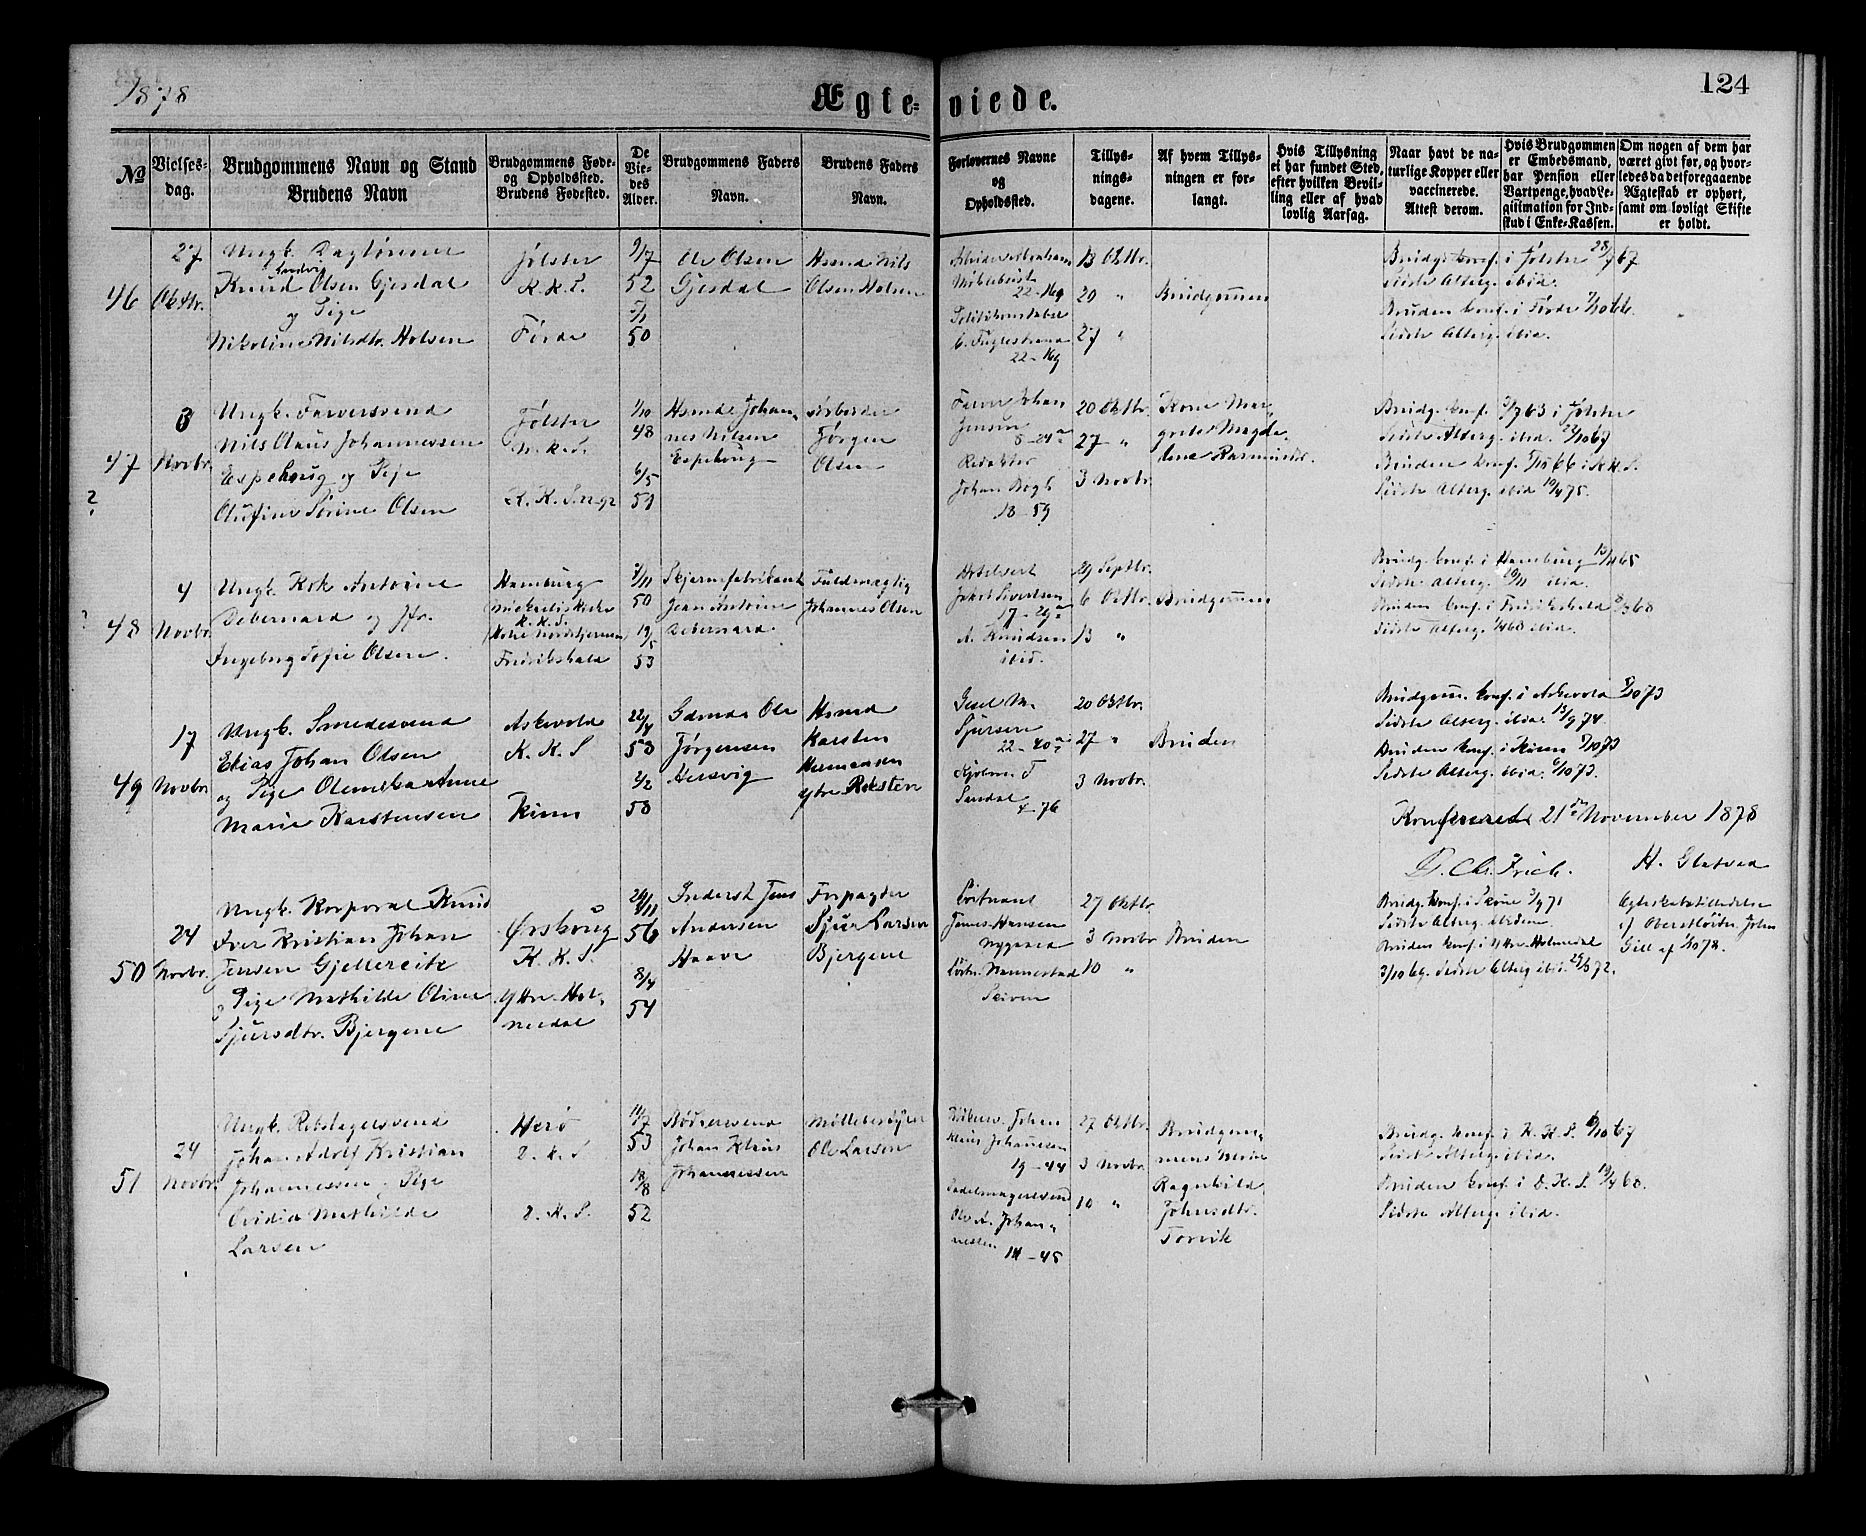 1878
Ægte-viede.
124
№
Vielses-dag.
Brudgommens Navn og Stand
Brudens Navn
Brudgommens Føde- og Opholdssted.
Brudens Fødested.
De Vie-des Alder.
Brudgommens Faders Navn.
Brudens Faders Navn.
Forlovernes Navne og Opholdssted.
Tillys-nings-dagene.
Af hvem Tillys-ningen er for-langt.
Hvis Tillysning ei har fundet Sted, efter hvilken Bevil-ling eller af hvad lovlig Aarsag.
Naar havt de na-turlige Kopper eller vaccinerede. Attest derom.
Hvis Brudgommen er Embedsmand, har Pension eller Vartpenge, hvad Le-gitimation for Ind-skud i Enke-Kassen.
Om nogen af dem har været gift før, og hvor-ledes da det foregaaende Ægteskab er ophørt, samt om lovligt Skifte er holdt.
46
27 Oktbr.
Ungk.
Knud Olsen Gjesdal
og Pige
Nikoline Nilsdtr. Holsen
Jølster
K. K. S.
Førde
9/7 52
50
Ole Olsen Gjesdal
Hsmd Nils Olsen Holsen
22-16g
C. Fuglestrand
22-16g
13 Oktbr.
20 "
27 "
Brudgommen
Brudg. konf. i Jølster 28/7 67
Sidste Alterg. ibid.
Bruden konf. i Førde 7/10 66.
Sidste Alterg. ibid.
47
?
3 Novbr.
Ungk. Farversvend
Nils Olaus Johannessen
Espehoug og Pige
Olufine Sørine Olsen
Jølster
N. K. S.
K. K. S.
1/10 48
6/5 51
Hsmd. Johan-nes Nilsen Espehoug
Arbeider Jørgen Olsen
Farver Johan Jensen
8-24a
Redaktør
Johan Bøgh
18-59
20 Oktbr.
27 "
3 Novbr.
Kone Mar-grethe Magda-lene Rasmusdtr.
Brudg. konf. 5/7 63 i Jølster
Sidste Alterg. ibid. 27/10 67
Bruden konf. 7/10 66 i K. K. S.
Sidste Alterg. ibid 19/4 75.
48
?
4 Novbr.
Ungk. Kok Antoine
Debernard og Pr.
Ingeborg Sofie Olsen.
Hamburg
K. K. S.
Fredrikshald
7/11 50
19/5 53
Skjermfabrikant Jean Antoine Debernard.
Fuldmægtig Johannes Olsen
Jakob Sivertsen
17-29a
A. Knudsen
ibid.
29 Septbr.
6 Oktbr.
13 "
Brudgommen
Brudg. konf. i Hamburg 13/4 65
Sidste Alterg. ibid.
Bruden konf. i Fredrikshald 68
Sidste Alterg. 68 ibid.
49
17 Novbr.
Ungk. Smedesvend
Elias Johan Olsen
og Pige Olenelka Anne
Marie Karstensen
Askevold
K. K. S
Kinn
22/4 53
2/2 50
Gdmd Ole Jørgensen Hersvig
Hsmd Karsten Hermansen Ytre Reksten
Sjursen
22-40a
Sandal
4-76
20 Oktbr.
27 "
3 Novbr.
Bruden
Brudgom. konf. i Askevold 5/10 73
Sidste Alterg. ibid. 13/9 74.
Bruden konf. i Kinn 5/10 73
Sidste Alterg. ibid. 6/10 73.
Konfereret 21de November 1878
D. Chr. Frich.
H. Gletved
50
24 Novbr.
Ungk. Korporal Knud
Iver Kristian Johan
Jensen Gjellereite
og Pige Mathilde Oline
Sjursdtr. Bjergene
Ørskoug
K. K. S.
Ytre Hol-medal
56
8/4 54
Inderst Jens Andersen Haave
Forpagter Sjur Larsen Bjergene
Løitnant
James Hansen
Nygaard
Løitn. Mannestad
Skiven
27 Oktbr.
3 Novbr
10 "
Bruden
Brudg. konf. i Skoue 71
Sidste Alterg. ibidem
Bruden konf. i Ytre Holmedal
3/10 69. Sidste Alterg. ibid. 72.
Ægteskabstilladelse
af Oberstløitn. John
Gill af 78.
51
24 Novbr.
Ungk. Rebslagersvend
Johan Adolf Kristian
Johannessen, Pige
Ovidia Mathilde
Larsen
Herø
D. K. S
D. K. S.
10/7 53
18/8 52
Bødkersvend Johan Klaus Johannessen
Møllebestyrer Ole Larsen
Johan
Klaus Johannesen
19-44
Sadelmagersvend
Ole A. Johan-
nessen 14-45
27 Oktbr.
3 Novbr.
10 "
Brudgom-mens Moder Ragnhild Johnsdtr. Torvik
Brudg. konf. i K. K. S. 6/10 67
Sidste Alterg. ibid.
Bruden konf. i D. K. S. 19/4 68.
Sidste Alterg. ibid.